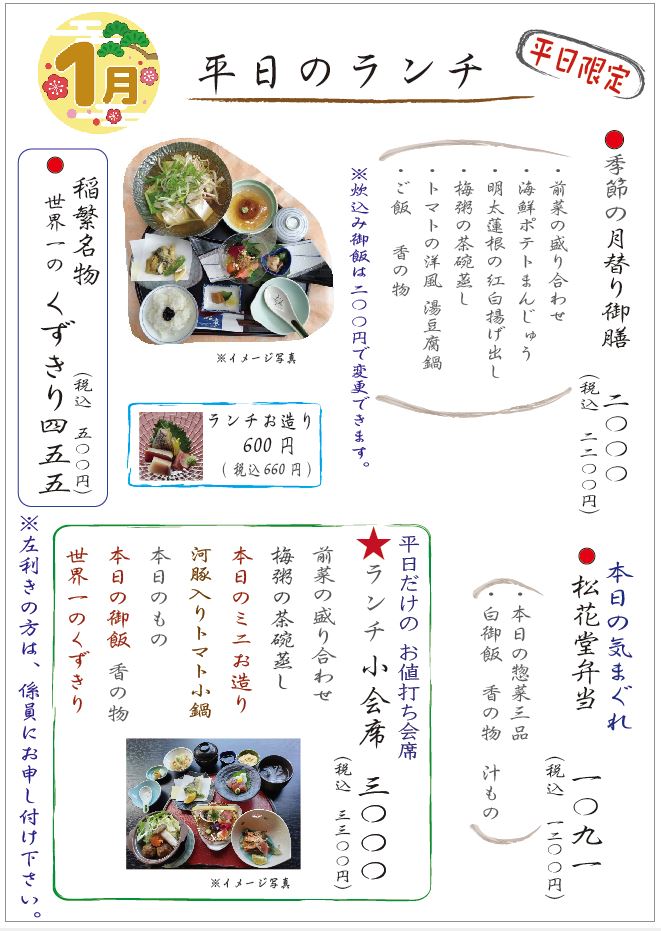 1月
平日のランチ
平日限定
●季節の月替り御膳 二〇〇〇
(税込 二二〇〇円)
・前菜の盛り合わせ
・海鮮ポテトまんじゅう
・明太蓮根の紅白揚げ出し
・梅粥の茶碗蒸し
・トマトの洋風 湯豆腐鍋
・ご飯 香の物
※炊込み御飯は二〇〇円で変更できます。
※イメージ写真
ランチお造り
600 円
(税込660円)
稲繁名物
●世界一の くずきり 四五五
(税込 五〇〇円)
本日の気まぐれ
●松花堂弁当 一〇九一
(税込 一二〇〇円)
・本日の惣菜三品
・白御飯 香の物 汁もの
平日だけの お値打ち会席
★ランチ 小会席 三〇〇〇
(税込 三三〇〇円)
前菜の盛り合わせ
梅粥の茶碗蒸し
本日のミニお造り
河豚入りトマト小鍋
本日のもの
本日の御飯 香の物
世界一のくずきり
※イメージ写真
※左利きの方は、係員にお申し付け下さい。